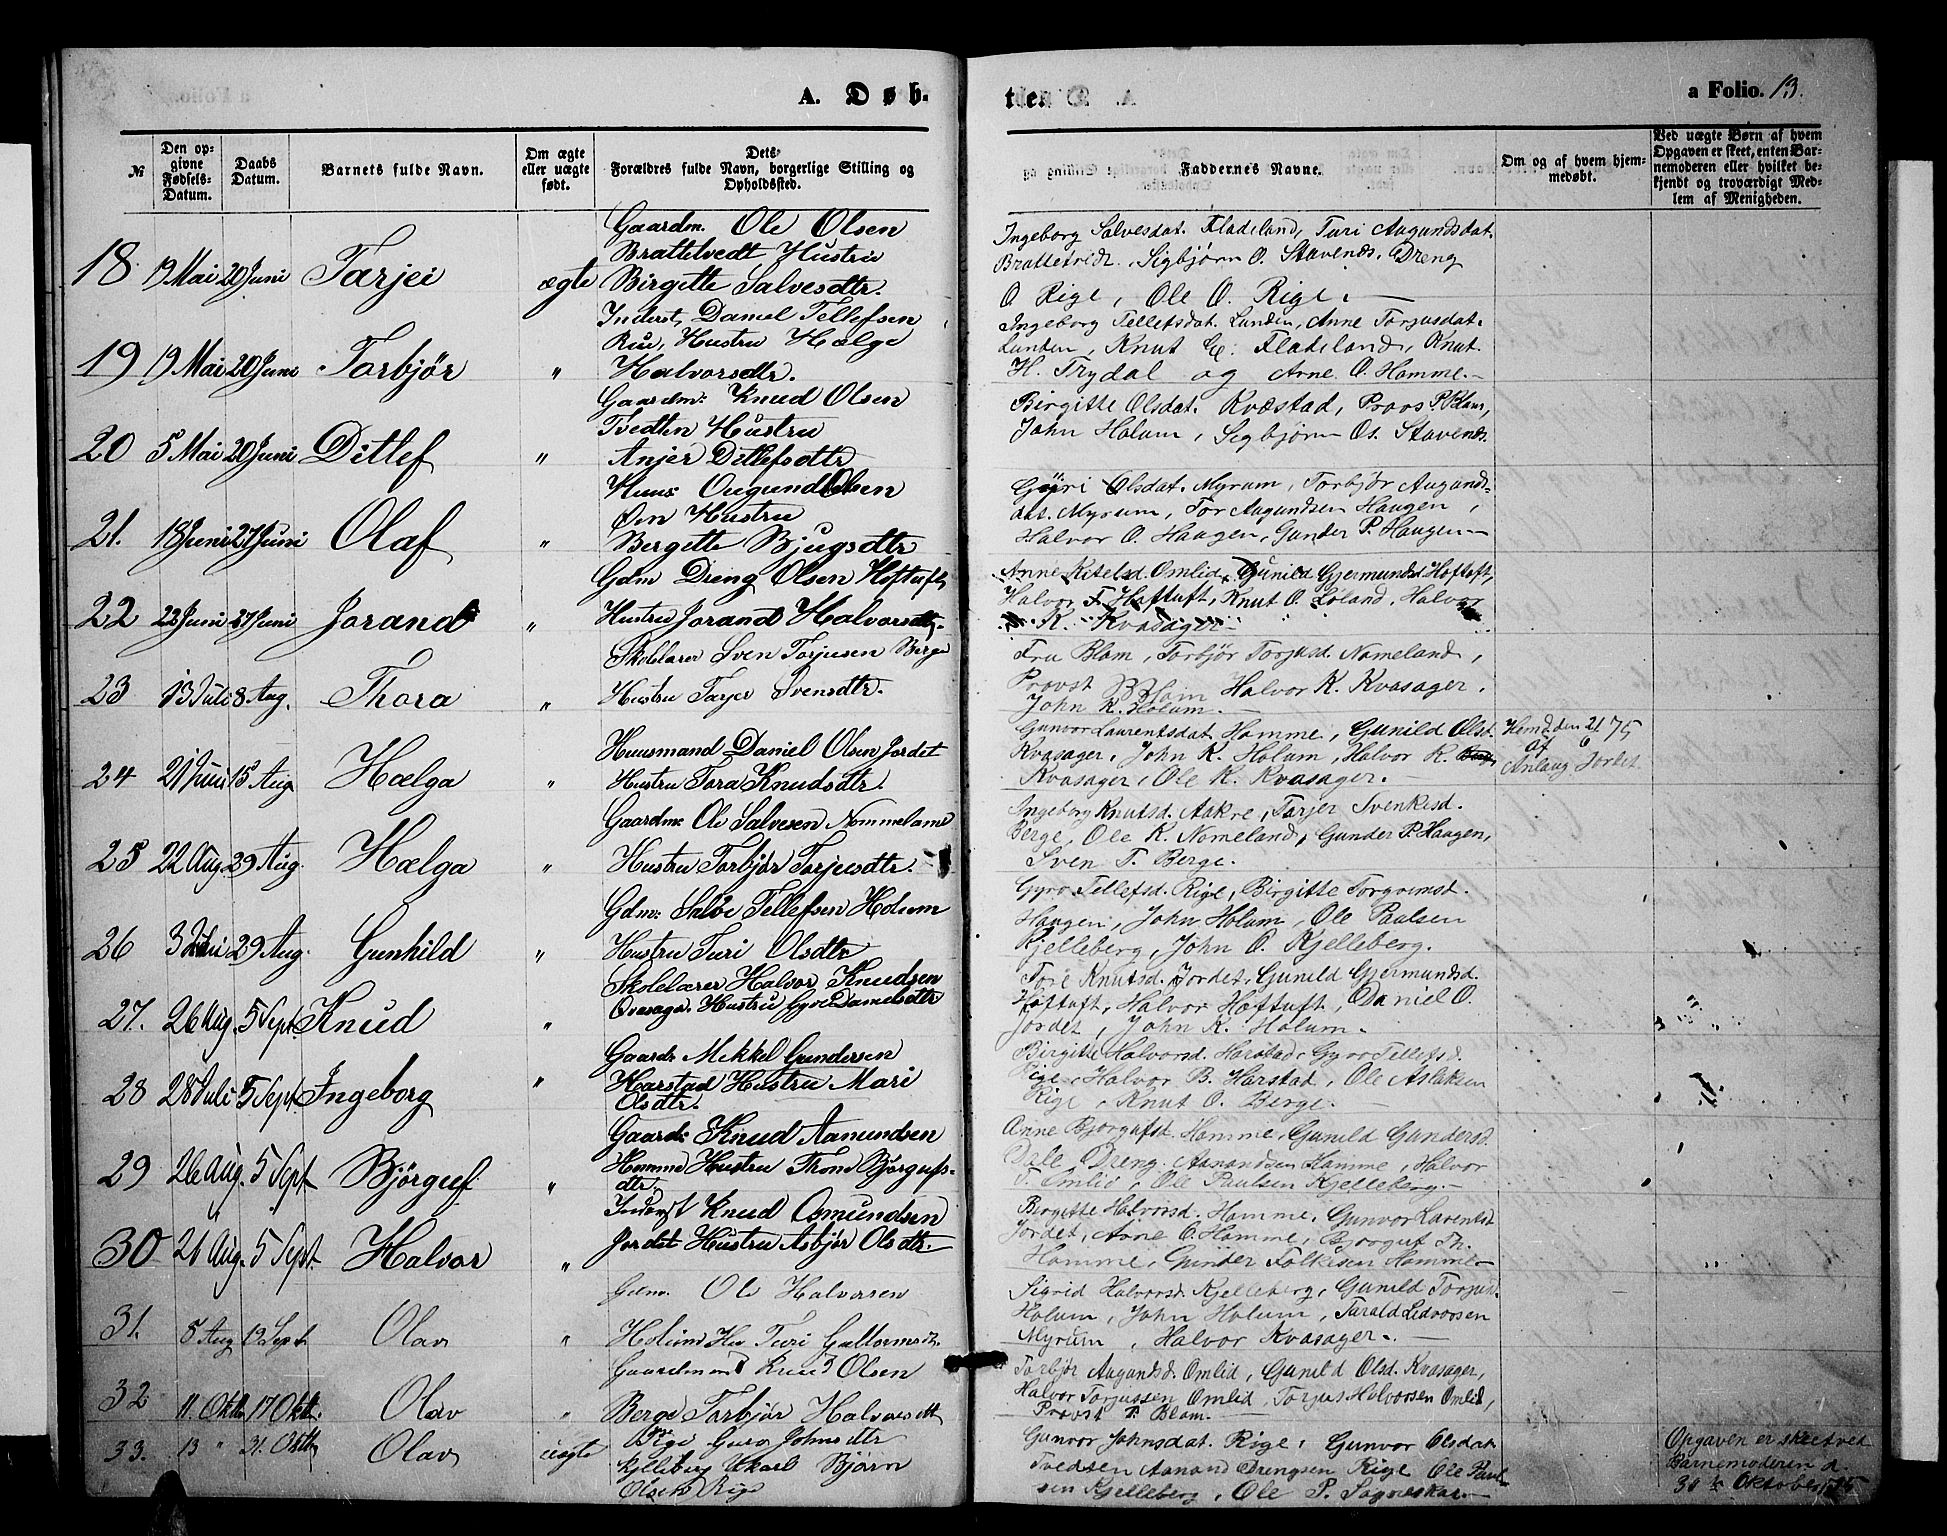 A. Døb-
№
Den opgivne Fødsels-Datum.
Daabs Datum.
Barnets fulde Navn.
Om ægte eller uægte født.
Dets Forældres fulde Navn, borgerlige Stilling og Opholdssted.
18. 19 Mai 20 Juni Tarjei ægte
Gaardm. Ole Olsen
Brattetvedt Hustru
Birgitte Salvesdtr.
19 19 Mai 20 Juni Torbjør "
Inderst, Daniel Tellefsen
Rue, Hustru Hælge
Halvorsdtr.
20 5 Mai 20 Juni Ditlef "
Gaardm: Knud Olsen
Tvedten Hustru
Anjer Ditlefsdtr
21. 18 Juni 27 Juni Olaf "
Huus: Ougund Olsen
Øen Hustru
Bergette Bjugsdtr
22 22 Juni 27 Juni Jorand "
Gdm Dreng Olsen Hoftuft,
Hustru Jorand Halvorsdtr.
23 13 Juli 8 Aug. Thora "
Skolelærer Sven Torjusen Berge
Hustru Tarjer Svensdtr.
24 21 Juni 15 Aug Hælga "
Huusmand Daniel Olsen Jordet
Hustru Tora Knudsdtr.
25 22 Aug. 29 Aug Hælga "
Gaardm: Ole Salvesen Nommeland
Hustru Torbjør Torjeesdtr.
26 29 Aug. Gunhild "
Gdm: Salve Tellefsen Holum
Hustru Turi Olsdtr
27. 26 Aug. 5 Sept. Knud "
Skolelærer Halvor Knudsen
Qvasager. Hustru Gyro Danielsdtr
28 28 Juli 5 Sept Ingeborg "
Gaard: Mekkel Gundersen
Harstad Hustru Mari
Olsdtr.
29 26 Aug. 5 Sept Bjørguf "
Gaard: Knud Aamundsen
Homme Hustru Thone Bjørgufs-
dtr.
30 21 Aug. 5 Sept. Halvor "
Inderst Knud Osmundsen
Jordet Hustru Asbjør Olsdtr.
31. 8 Aug 19 Sept. Olav "
Gdm. Ole Halvorsen
Holum Hu Turi
32 11. Oktb 17 Oktb. Olav "
Gaardmand Knud Olsen
Berge Torbjør Halvorsdtr
33. 13 " 31. Oktb Olav uægte
Pige Guro Johnsdtr
Kjelleberg Ukarl Bjørn
Olsen Rige
tden
a Folio. 13.
Faddernes Navne.
Om og af hvem hjemmedøbt.
Ved uægte Børn af hvem Opgaven er skeet, enten Barnemoderen eller hvilket bekjendt og troværdigt Medlem af Menigheden.
Ingeborg Salvesdat. Fladeland, Turi Augundsdat.
Brattetvedt, Sigbjørn O. Stavenes, Dreng
O. Rige, Ole O. Rige.
Ingeborg Tellefsdat. Lunden, Anne Torjusdat.
Lunden, Knut G. Fladeland, Knut
H. Trydal og Arne O. Homme.
Birgitte Olsdat. Kvæstad, Provs P. Blom,
John Holum, Sigbjørn Os. Stavenes
Gyri Olsdat. Myrum, Torbjør Augunds-
dat. Myrum, Tor Augundsen Haugen,
Halvor O. Haugen, Gunder P. Haugen
Anne Kitelsd. Omlid, Gunild Gjermundsd Hoftuft,
Halvor F. Hoftuft, Knut O. Løland, Halvor
K. Kvasager
Fru Blom, Torbjør Torjusd. Nomeland,
Provst Blom Halvor K. Kvasager,
John K. Holum.
Gunvor Laurentsdat. Homme, Gunild Olsd.
Kvasager, John K. Holum, Halvor K.
Kvasager, Ole K. Kvasager.
Hemd. den 21/6 75
af
Anlaug Jordet
Ingeborg Knutsd. Aakre, Tarjer Svenkesd.
Berge, Ole K. Nomeland, Gunder P. Haugen,
Sven T. Berge.
Gyro Tellefsd. Rige, Birgitte Torgrimsd.
Haugen, John Holum, Ole Paulsen
Kjelleberg, John O. Kjelleberg.
Tore Knutsd. Jordet, Gunild Gjermundsd.
Hoftuft, Halvor Hoftuft, Daniel O.
Jordet, John K. Holum.
Birgitte Halvorsd. Harstad, Gyro Tellefsd.
Rige, Halvor B. Harstad, Ole Aslaksen
Rige, Knut O. Berge.
Anne Bjorgufsd. Homme, Gunild Gundersd.
Dale Dreng Aanandsen Homme, Halvor
T. Omlid, Ole Paulsen Kjelleberg.
Birgitte Halvorsd. Homme, Gunvor Larentsd
Jordet, Arne O. Homme, Bjorguf Th.
Homme, Gunder Folkesen Homme
Sigrid Halvorsd. Kjelleberg, Gunild Torjusd.
Holum, John Holum, Tarald Lidvorsen
Myrum, Halvor Kvasager.
Torbjør Augundsd. Omlid, Gunild Olsd. Kvasager,
Halvor Torjussen Omlid, Torjus Halvorsen Omlid,
Provst P. Blom.
Gunvor Johnsdat. Rige, Gunvor Olsdat
Tvedten Aanand Drengsen Rige Ole Paul-
sen Kjelleberg, Ole P. Sagneskar.
Opgaven er skeet ved
Barnemoderen d.
31 Oktober 75